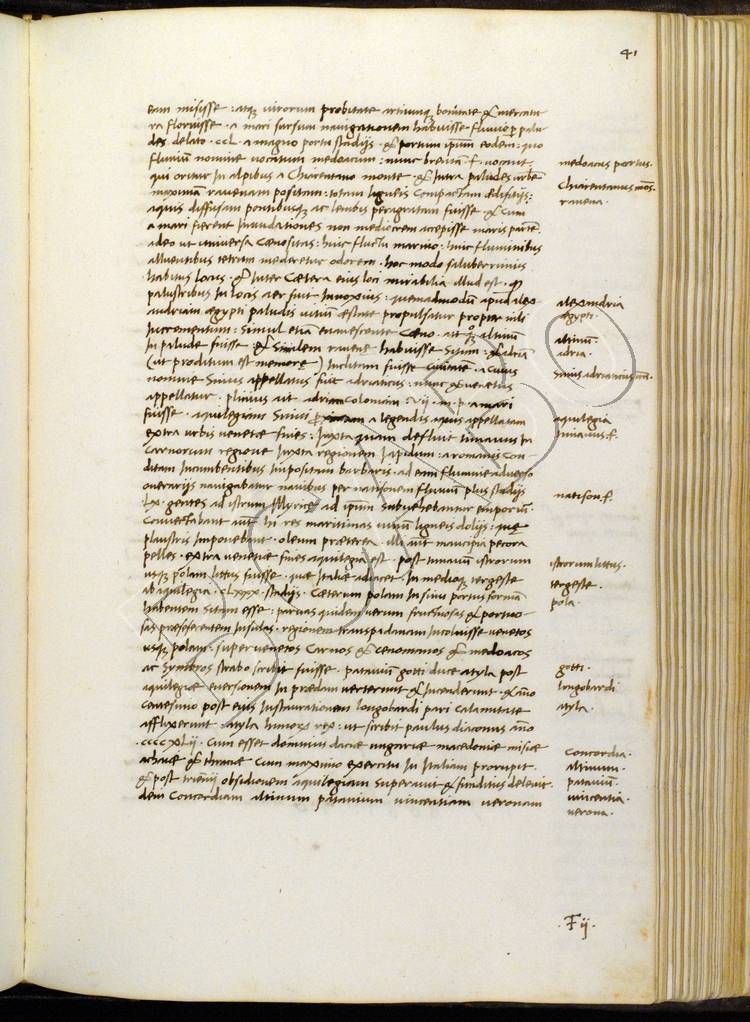 41
eam misisse : atq; virorum probitate artiumq; bonitate & mercatu
ra floruisse · a mari sursum navigationem habuisse · fluvio p palu
des delato · ccL · a magno portu stadijs · & portum ipsum eodem : quo
fluvium nomine vocatum medoacum : nunc brenta · f · vocant
qui oritur in alpibus a Chiarentano monte · & Intra paludes urbē
maximā ravenam positam : totam ligneis Compactam ædifitijs :
aquis diffusam pontibusq; ac lembis peragratam fuisse · & Cum
a mari fierent Inundationes non mediocrem accepisse maris partē
adeo ut universa Cœnositas : hinc fluctu marino : hinc fluminibus
alluentibus tetrum mederetur odorem · hoc modo saluberrimus
habitus locus · & Inter Cætera eius loci mirabilia illud est · q
palustribus In locis aer sint Innoxius : quemadmodū apud alex
andriam ægypti paludis vitiū æstate propulsatur propter nili
Incrementum : simul etiā evanescente Cœno · altinū
In palude fuisse · & similem ravenæ habuisse situm : & adriā
(ut proditum est memoriæ) Inclitam fuisse Civitatē · a Cuius
nomine sinus appellatus sint adriaticus : nunc & venetus
appellatur · plinius ait adriam Coloniam VII · m · p · a mari
fuisse · aquilegiam sinui a legendis aquis appellatam
extra urbis venetæ fines : Iuxta quam defluit timavus In
Carnorum regione Iuxta regionem Iapidum : a romanis con
ditam Incumbentibus Impositam barbaris · ad eam flumine adverso
onerarijs navigabatur navibus per natisonem fluviū plus stadijs
LX · gentes ad istrum Illyricæ ad ipsum subvehebantur emporiū ·
Convectabant aūt hi res maritimas vinū ligneis dolijs : quæ
plaustris Imponebant · oleum præterea · illi aūt mancipia pecora
pelles · extra venetiæ fines aquilegia est · post timavū istrorum
usq; polam littus fuisse · quæ Italiæ adiacet · In medioq; tergeste
ab aquilegia · cLxxx · stadijs · Cæterum polam In sinu portus formā
habentem sitam esse : parvas quidem verum fructuosas & portuo
sas præseferentem Insulas · regionem transpadanam Incoluisse venetos
usq; polam : super venetos Carnos & cenomanos & medoacos
ac symbros strabo scribit fuisse · patavium gotti duce atyla post
aquilegiæ eversionem In prædam verterunt & Incenderunt · & āno
Centesimo post eius Instaurationem longobardi pari Calamitate
afflixerunt · atyla hunorū rex : ut scribit paulus diaconus āno
· ccccxLii · Cum esset dominus daciæ ungariæ macedoniæ misiæ
achaiæ & thraciæ Cum maximo exercitu In Italiam prorupit ·
& post trienij obsidionem aquilegiam superavit & funditus delevit ·
dein Concordiam altinum patavium vincentiam veronam
medoacus portus ·
Chiarentanus mōs ·
ravena ·
alexandria
ægypti ·
altinū ·
adria ·
sinus adriaticus
aquilegia
timavus · f ·
natison · f ·
istrorum littus ·
tergeste ·
pola ·
gotti ·
longobardi
atyla ·
Concordia ·
altinum ·
patavium ·
vincentia ·
verona ·
· F ij ·